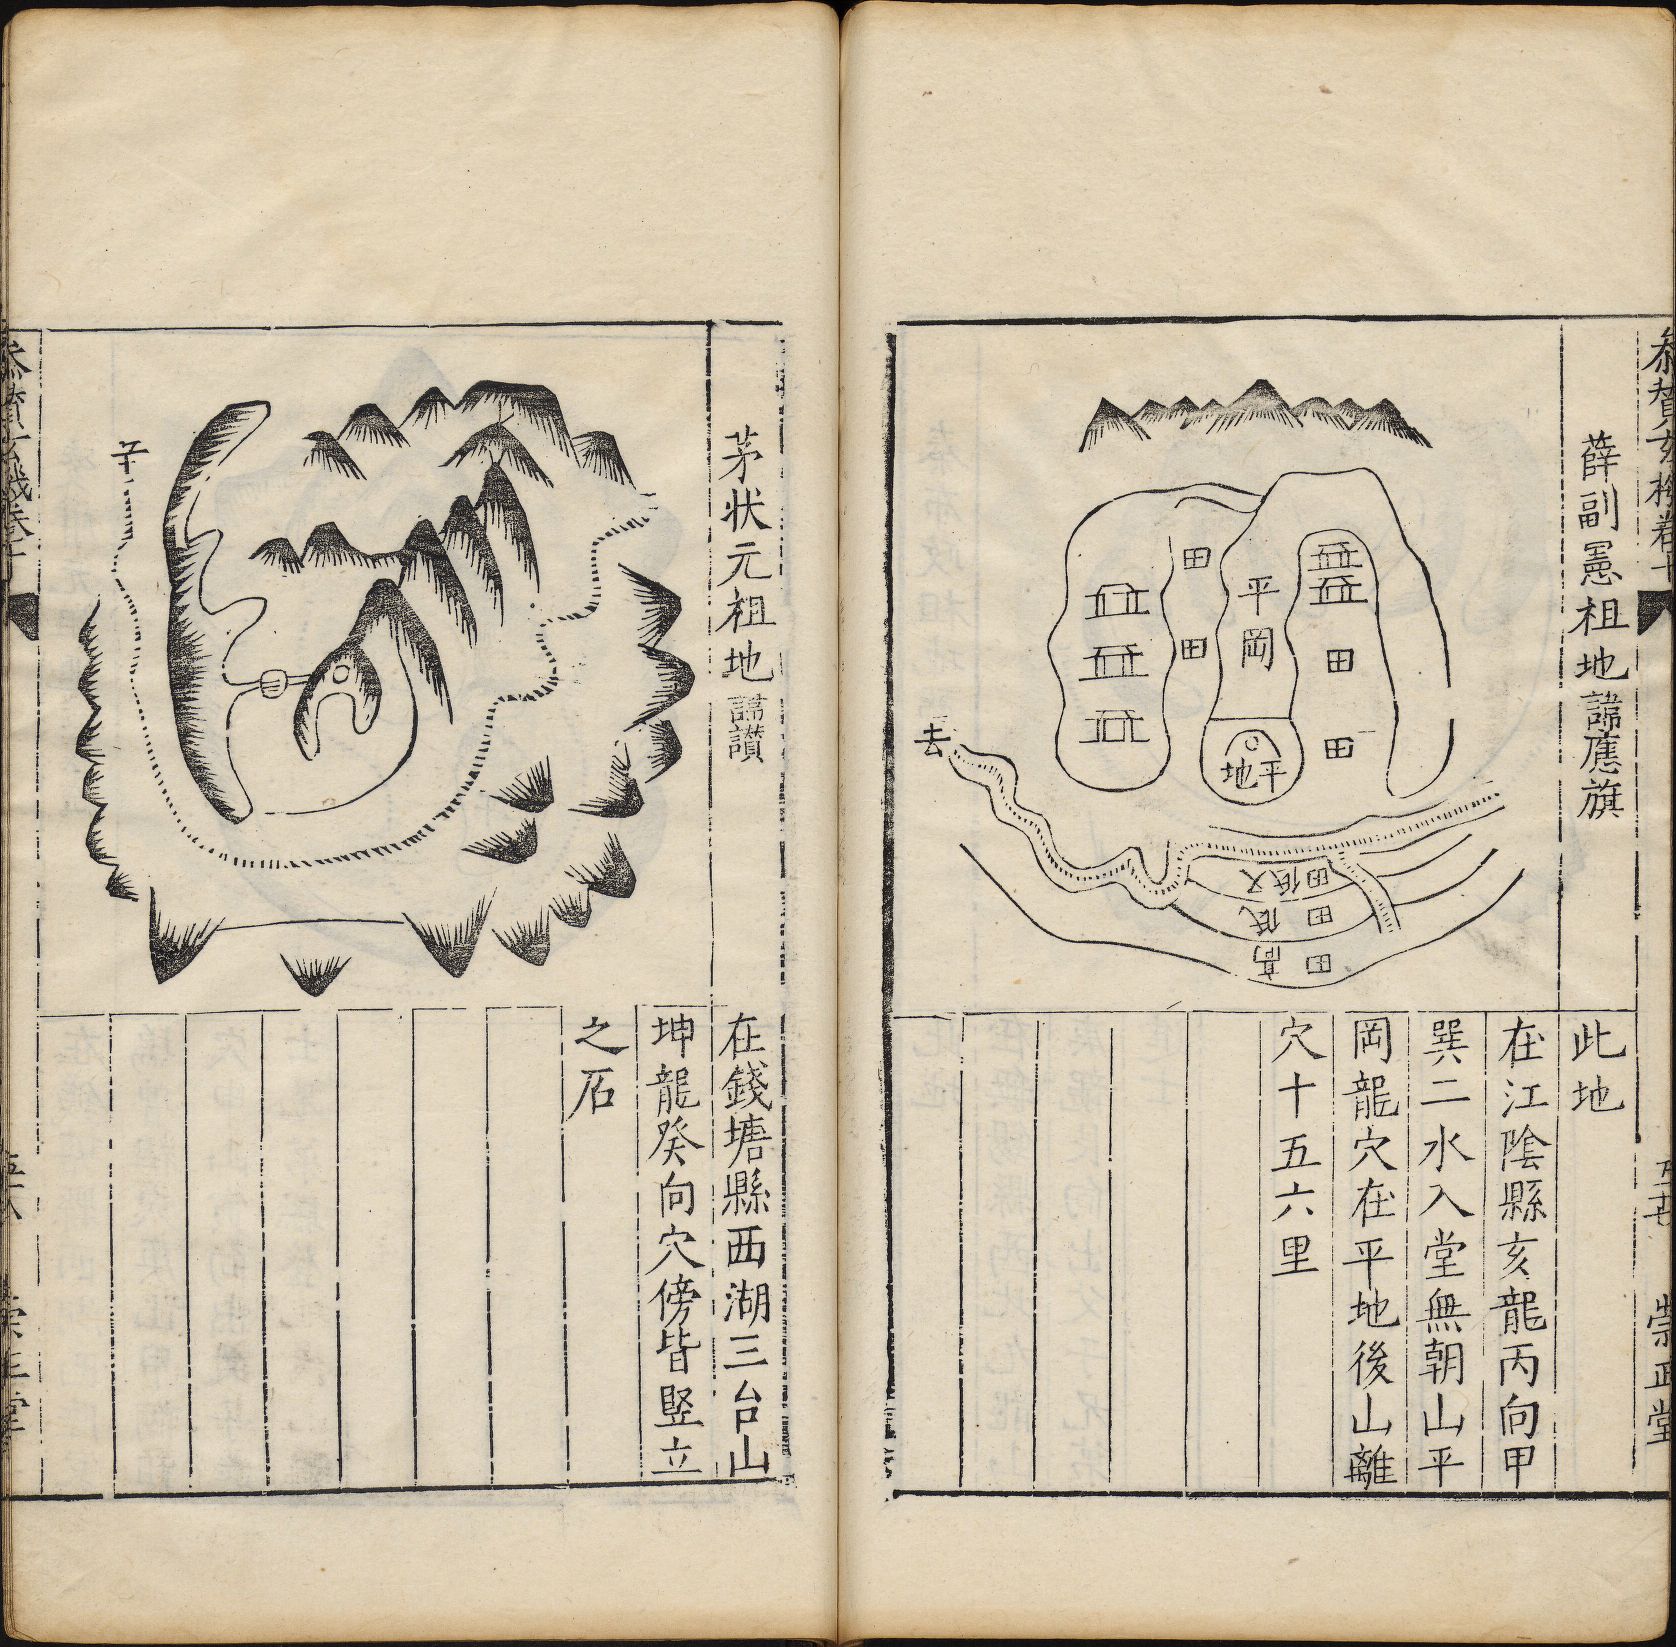 參贊玄機卷十
五十七
崇正堂
薛副憲祖地諱應旂
田
田
平岡
田
田
平地
去
田低又
田低
田高
此地
在江陰縣亥龍丙向甲
巽二水入堂無朝山平
岡龍穴在平地後山離
穴十五六里
茅狀元祖地諱讃
子
在錢塘縣西湖三台山
坤龍癸向穴傍皆竪立
之石